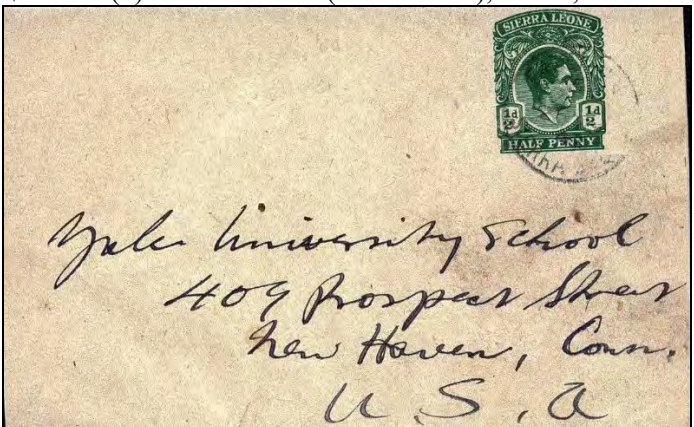 SIERRA LEONE
½d ½d
HALF PENNY
Yale University School
409 Prospect Street
New Haven, Conn.
U.S.A